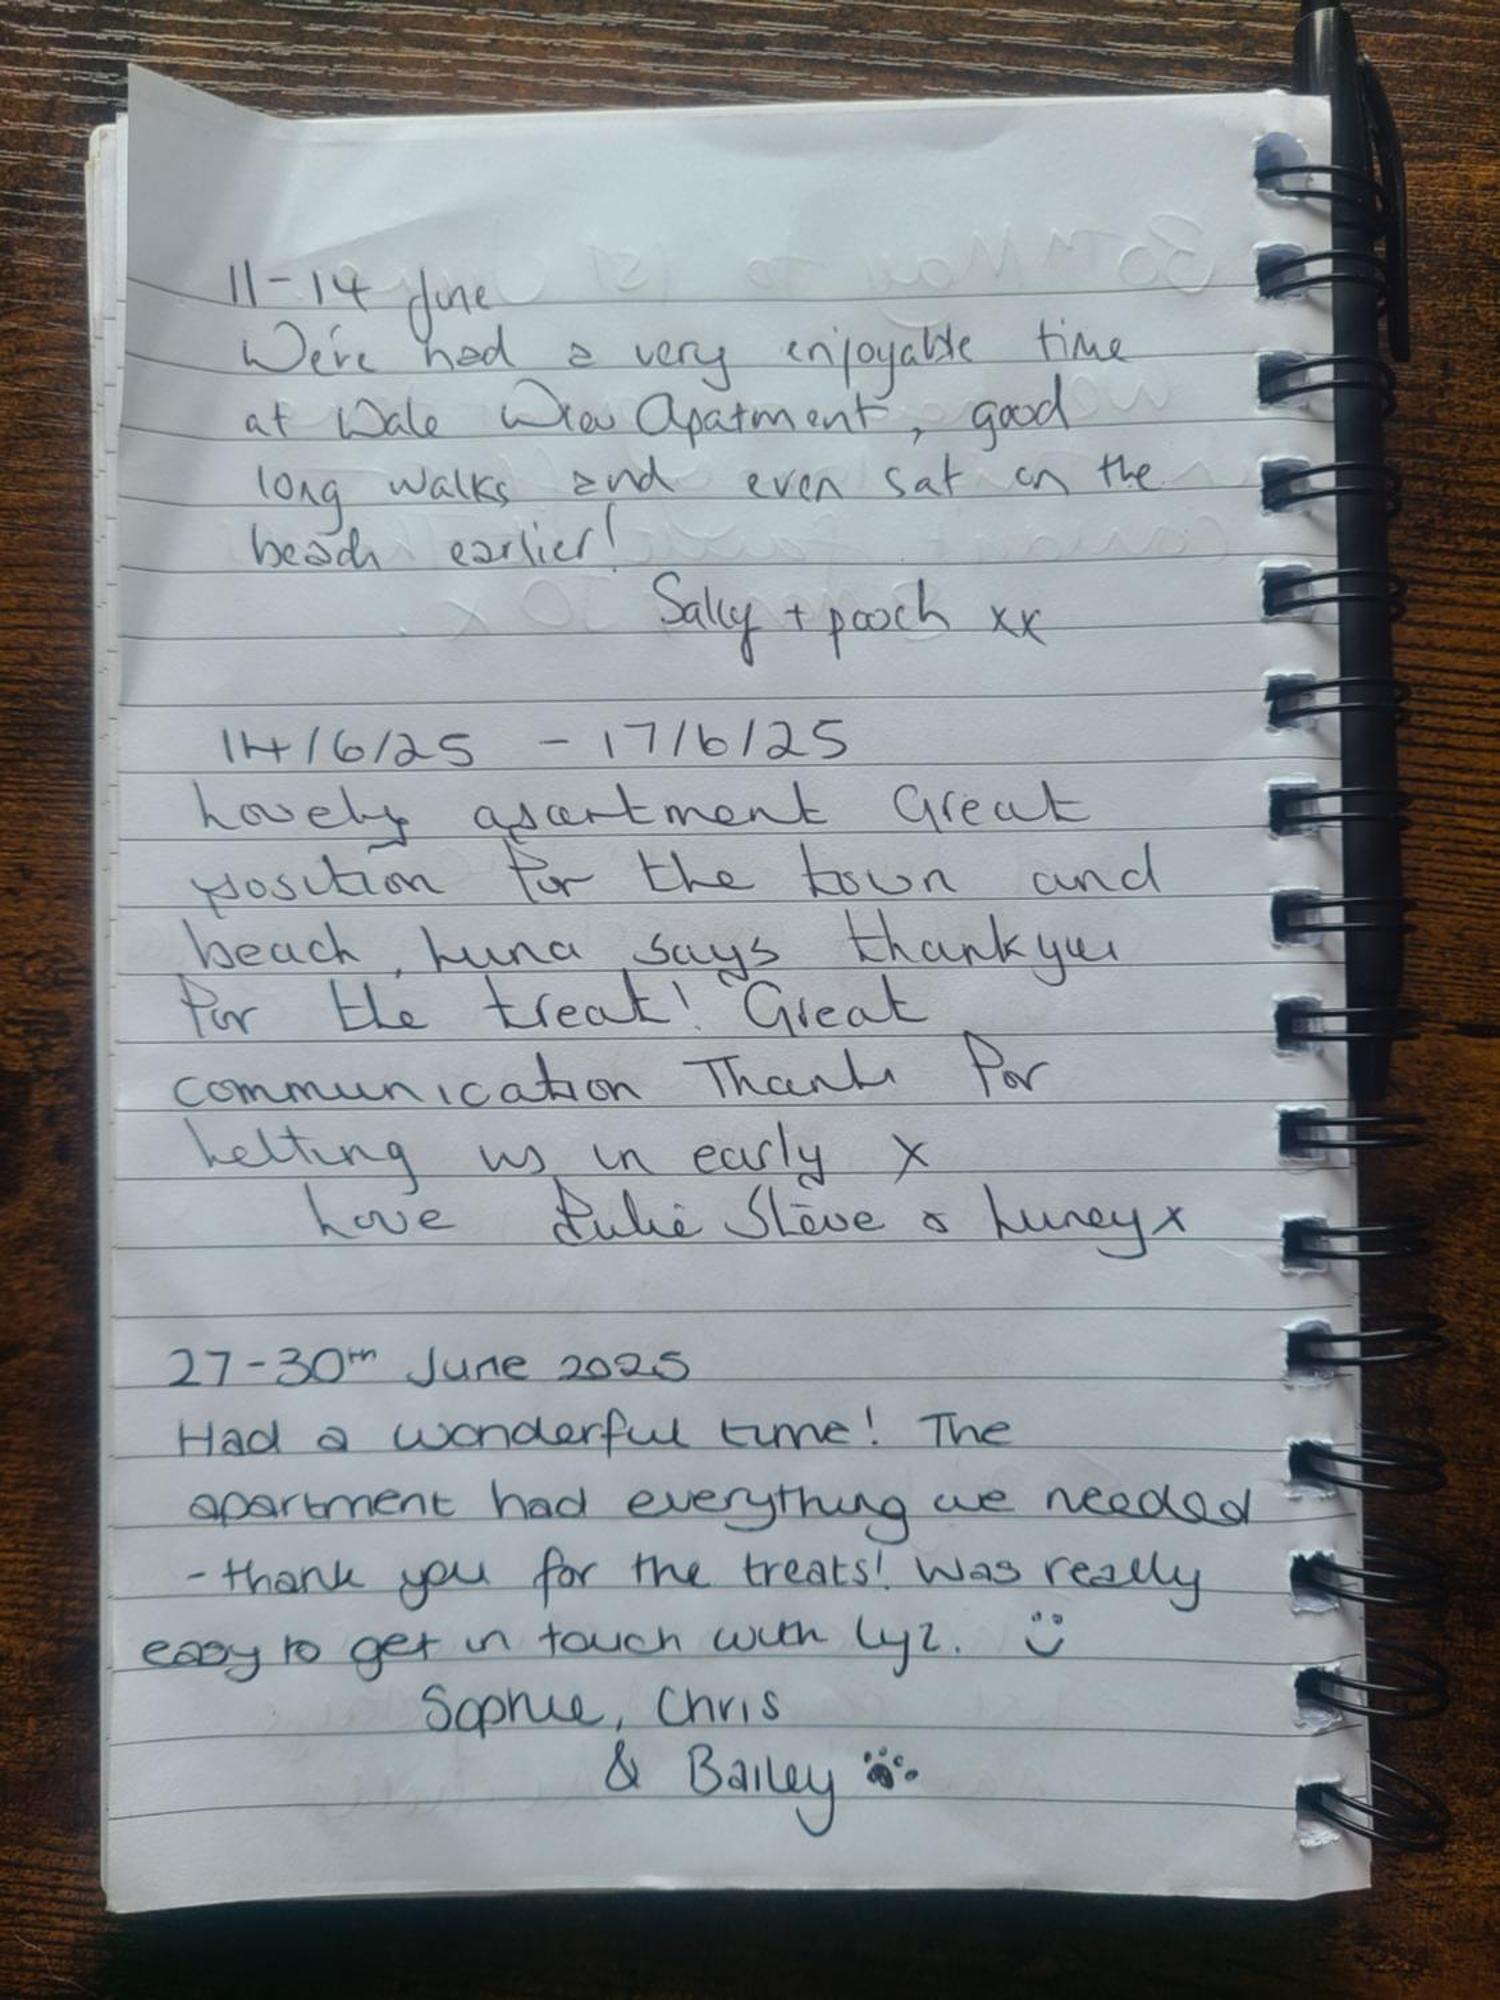 11-14 June
We've had a very enjoyable time
at Wale View Apatment, good
long walks and even sat on the
beach earlier!
Sally + pooch xx
14/6/25 - 17/6/25
Lovely apartment Great
position for the town and
beach, Luna says thankyou
for the treat! Great
communication Thanks for
letting us in early x
Love Julie Steve & Luney x
27-30th June 2025
Had a wonderful time! The
apartment had everything we needed
- thank you for the treats! Was really
easy to get in touch with Lyz. :)
Sophie, Chris
& Bailey